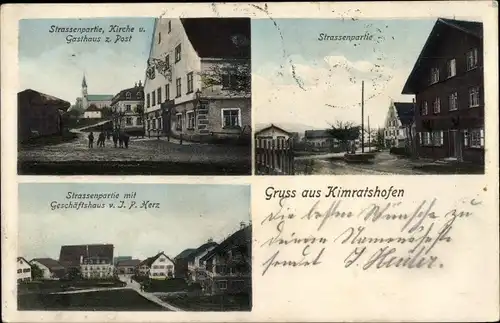 Strassenpartie, Kirche u.
Gasthaus z. Post
Strassenpartie
Strassenpartie mit
Geschäftshaus v. J. P. Herz
Gruss aus Kimratshofen
Die besten Wünsche zu
deinem Namensfeste
sendet J.